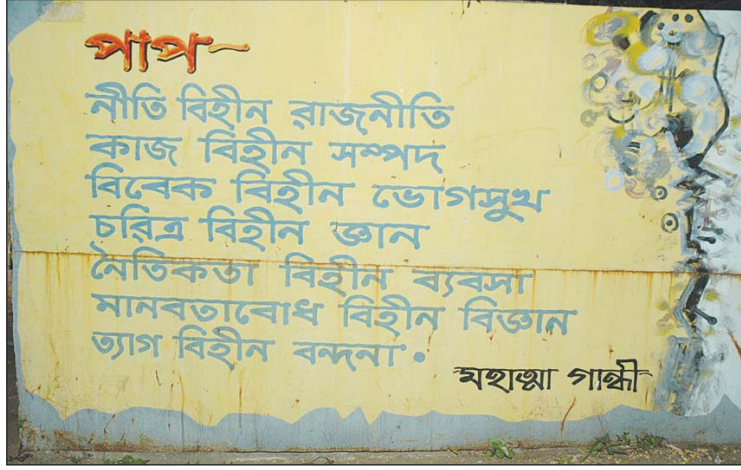 পাপ~
নীতি বিহীন রাজনীতি
কাজ বিহীন সম্পদ
বিবেক বিহীন ভোগসুখ
চরিত্র বিহীন জ্ঞান
নৈতিকতা বিহীন ব্যবসা
মানবতাবোধ বিহীন বিজ্ঞান
ত্যাগ বিহীন বন্দনা •
মহাত্মা গান্ধী